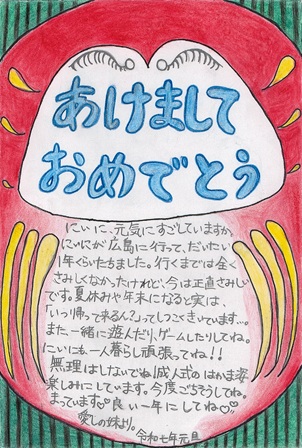 あけまして
おめでとう
にいに、元気にすごしていますか。
にいにが広島に行って、だいたい
1年ぐらいたちました。行くまでは全く
さみしくなかったけれど、今は正直さみしい
です。夏休みや年末になると実は、
「いつ帰って来るん?」ってしつこくきいています…。
また、一緒に遊んだり、ゲームしたりしてね。
にいにも一人暮らし頑張ってね!!
無理はしないでね!成人式のはかま姿
楽しみにしています。今度ごちそうしてね。
まっています♡良い一年にしてね♡
愛しの妹より。
令和七年元旦